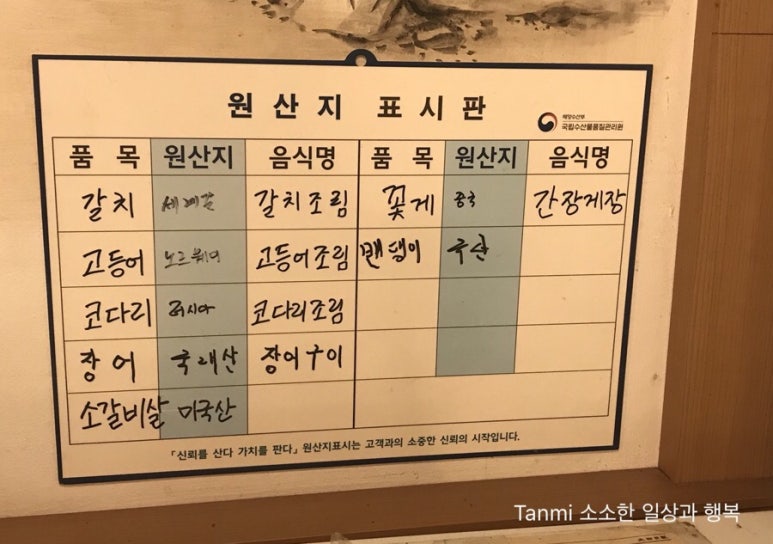 원산지 표시판
해양수산부
국립수산물품질관리원
품 목 원산지 음식명 품 목 원산지 음식명
갈치 세네갈 갈치조림 꽃게 중국 간장게장
고등어 노르웨이 고등어조림 밴댕이 국산
코다리 러시아 코다리조림
장어 국내산 장어구이
소갈비살 미국산
「신뢰를 산다 가치를 판다」 원산지표시는 고객과의 소중한 신뢰의 시작입니다.
Tanmi 소소한 일상과 행복